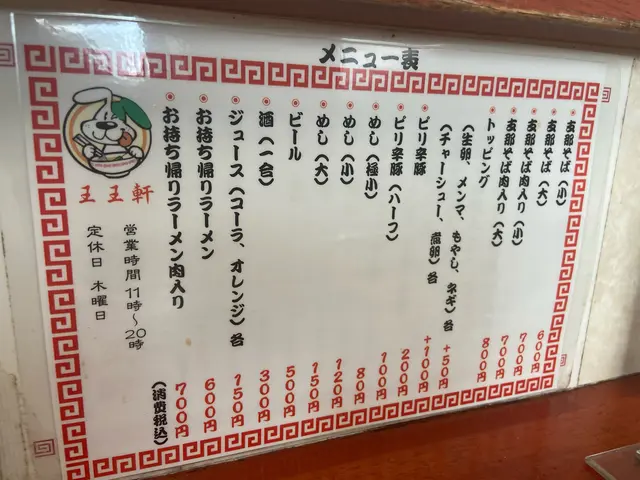 メニュー表
支那そば（小） 600円
支那そば（大） 700円
支那そば肉入り（小） 700円
支那そば肉入り（大） 800円
トッピング
（生卵、メンマ、もやし、ネギ）各 +50円
（チャーシュー、煮卵）各 +100円
ピリ辛豚 200円
ピリ辛豚（ハーフ） 100円
めし（極小） 80円
めし（小） 120円
めし（大） 150円
ビール 500円
酒（一合） 300円
ジュース（コーラ、オレンジ）各 150円
お持ち帰りラーメン 600円
お持ち帰りラーメン肉入り 700円
（消費税込）
王王軒
営業時間 11時〜20時
定休日 木曜日